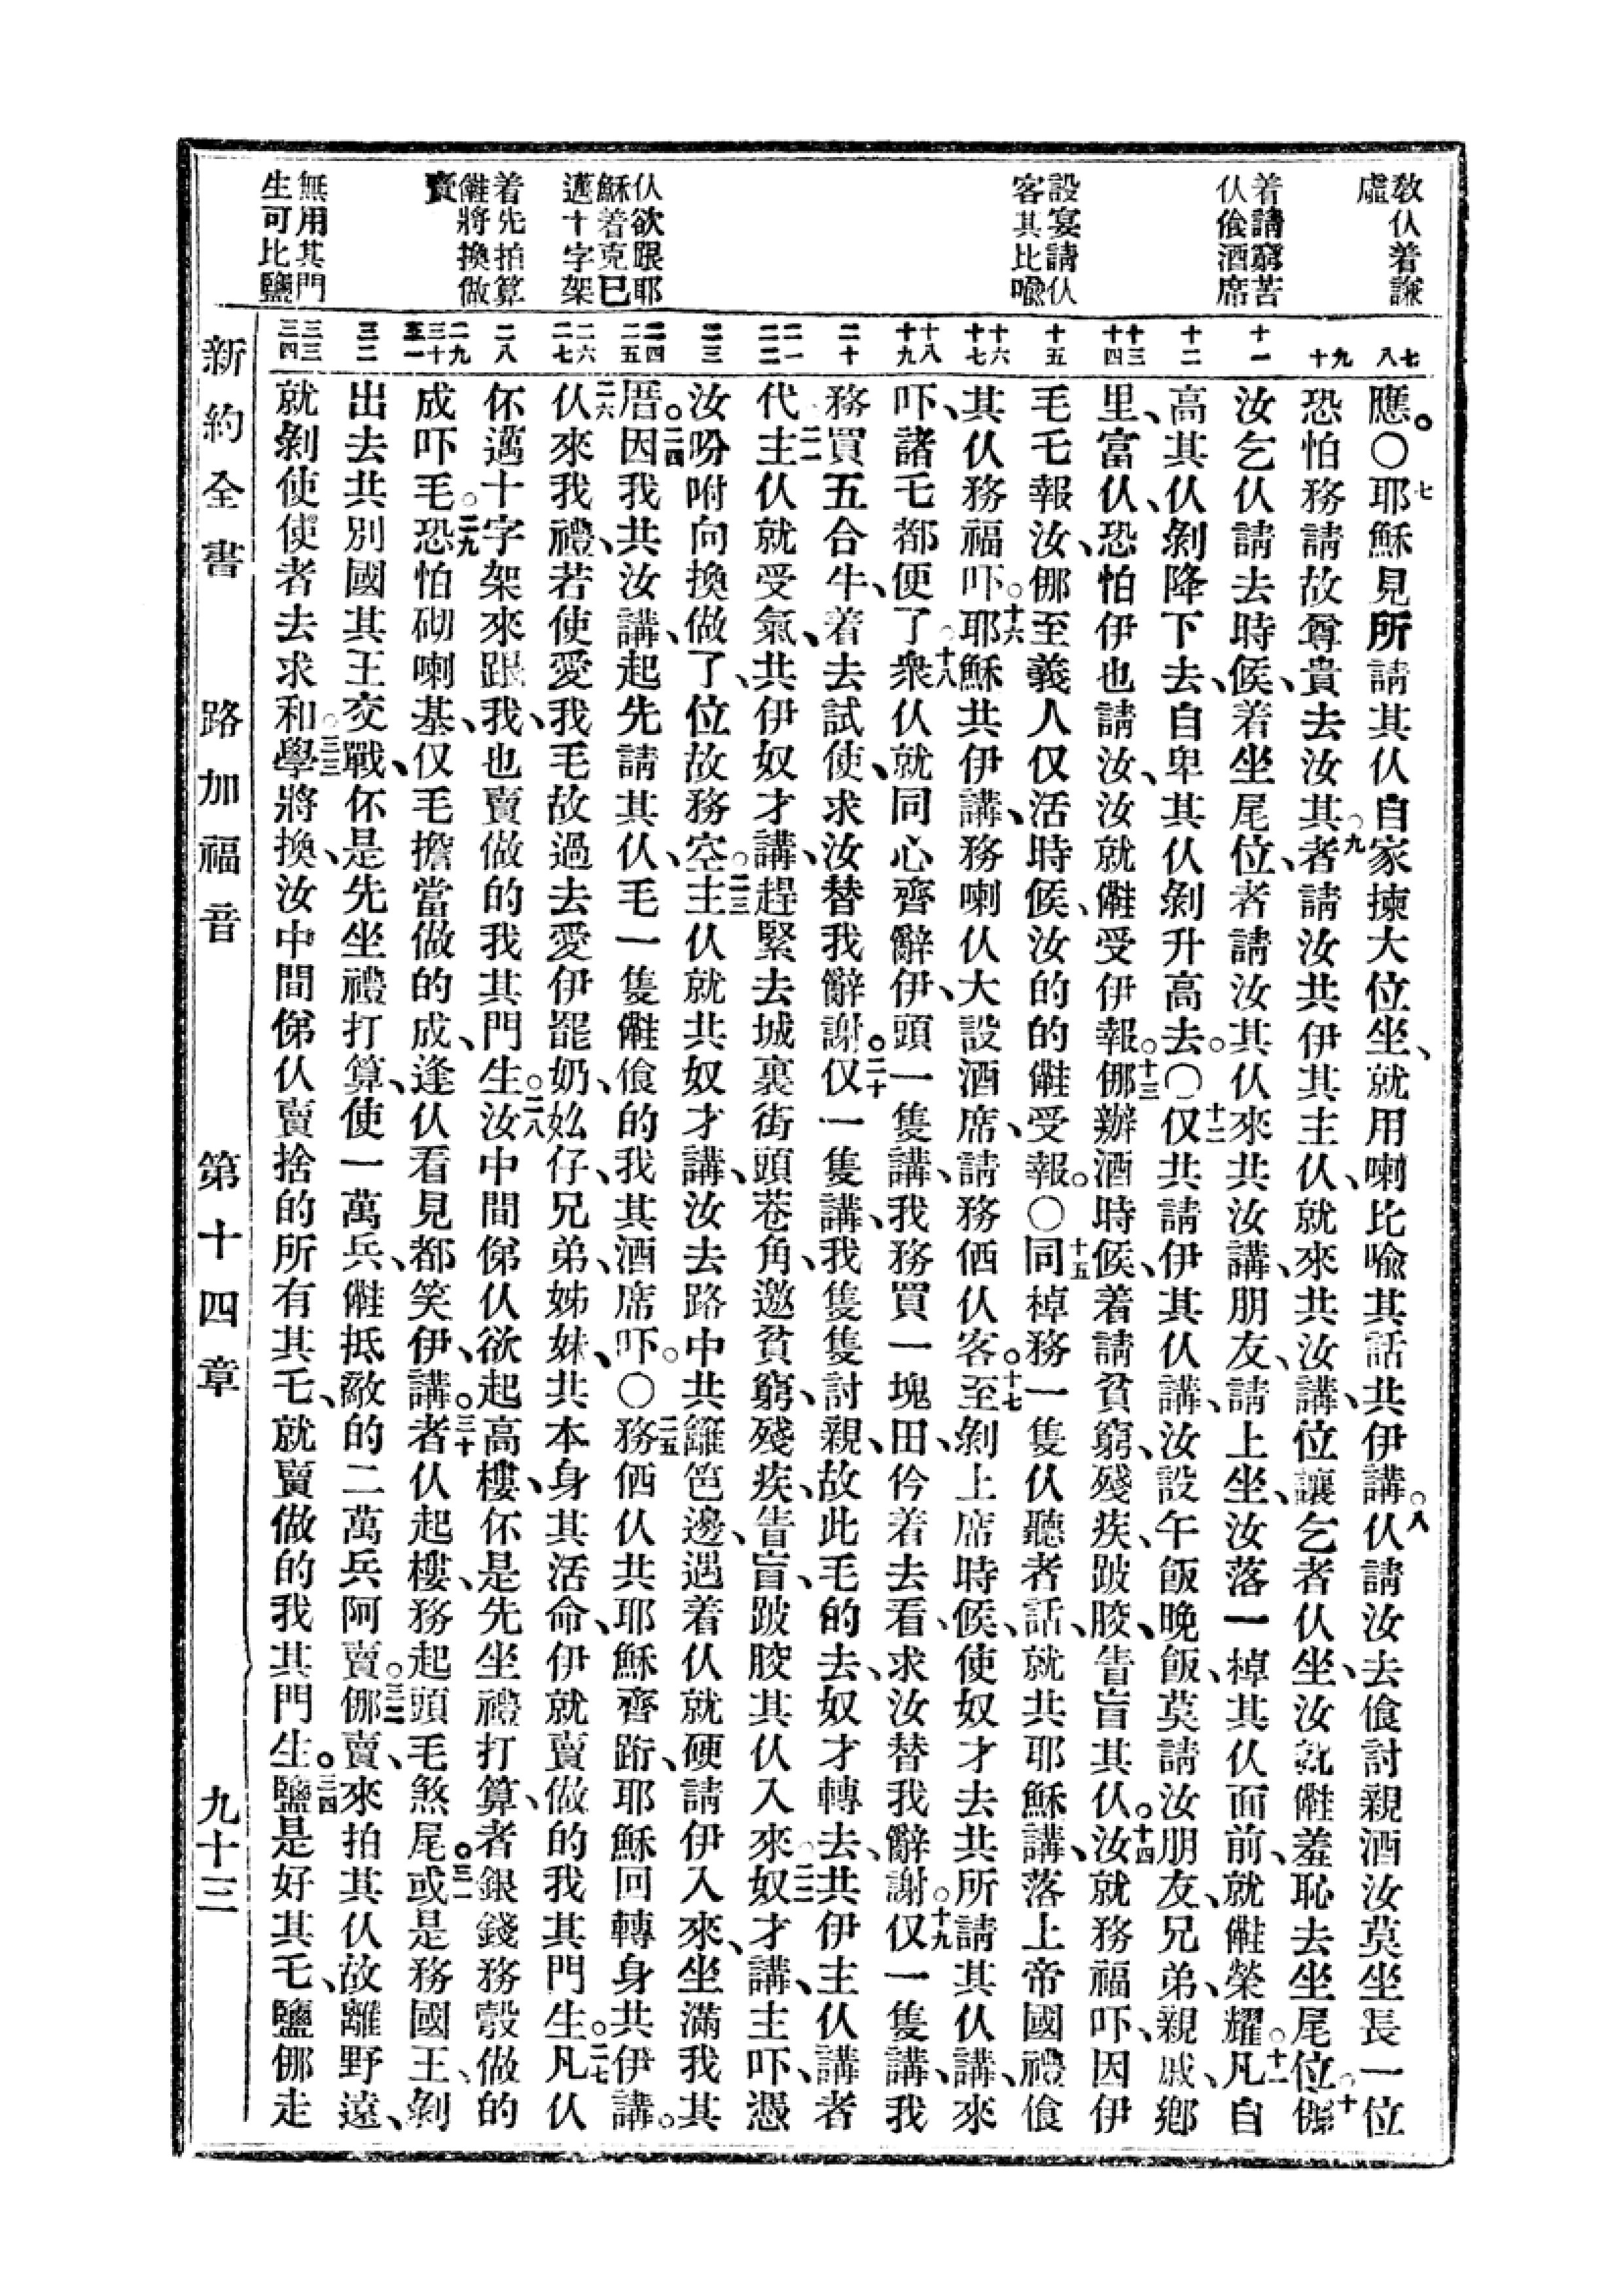 教仈着謙
虛
着請窮苦
仈飡酒席
設宴請仈
客其比喩
仈欲跟耶
穌着克已
邁十字架
着先拍算
𣍐將換做
賣
無用其門
生可比鹽
七
八
九
十
十一
十二
十三
十四
十五
十六
十七
十八
十九
二十
二一
二二
二三
二四
二五
二六
二七
二八
二九
三十
三一
三二
三三
三四
應。〇七耶穌見所請其仈自家揀大位坐、就用喇比喩其話共伊講。八仈請汝去飡討親酒汝莫坐長一位
恐怕務請故尊貴去汝其九者請汝共伊其主仈、就來共汝講、位讓乞者仈坐、汝就𣍐羞恥去坐尾位。十
汝乞仈請去時候、着坐尾位、者請汝其仈來共汝講、朋友、請上坐、汝落一棹其仈面前、就𣍐榮耀。十一凡自
高其仈、剝降下去、自卑其仈剝升高去。〇十二仅共請伊其仈講、汝設午飯晚飯、莫請汝朋友、兄弟、親戚、鄕
里、富仈、恐怕伊也請汝、汝就𣍐受伊報。十三㑚辦酒時候、着請貧窮、殘疾、跛骹、眚盲其仈。十四汝就務福吓、因伊
毛乇報汝、㑚至義人仅活時候、汝的的𣍐受報。〇十五同棹務一隻仈聽者話、就共耶穌講、落上帝國禮飡
其仈務福吓。十六耶穌共伊講、務喇仈大設酒席、請務価仈客。十七至剝上席時候、使奴才去共所請其仈講、來
吓、諸乇都便了。十八衆仈就同心齊辭伊、頭一隻講、我務買一塊田、仱着去看、求汝替我辭謝。十九仅一隻講、我
務買五合牛、着去試使、求汝替我辭謝。二十仅一隻講、我隻隻討親、故此毛的去、奴才轉去、共伊主仈講、者
代、二一主仈就受氣、共伊奴才講、趕緊去城裏街頭巷角、邀貧窮、殘疾、眚盲、跛骹其仈入來。二二奴才講、主吓、憑
汝吩咐向換做了、位故務空。二三主仈就共奴才講、汝去路中共籬笆邊、遇着仈就硬請伊入來、坐滿我其
厝。二四因我共汝講、起先請其仈、毛一隻𣍐飡的我其酒席吓。〇二五務価仈共耶穌齊跲、耶穌回轉身共伊講。
二六仈來我禮、若使愛我毛故過去愛伊罷奶、妐仔、兄弟、姊妹、共本身其活命、伊就賣做的我其門生。二七凡仈
伓邁十字架來跟我、也賣做的我其門生。二八汝中間㑚仈欲起高樓、伓是先坐禮打算、者銀錢務彀做的
成吓毛。二九恐怕砌喇基、仅毛擔當做的成、逢仈看見都笑伊、講。三十者仈起樓、務起頭毛煞尾。三一或是務國王、剝
出去共別國其王交戰、伓是先坐禮打算、使一萬兵、𣍐抵敵的二萬兵阿賣。三二㑚賣、來拍其仈故離野遠、
就剝使使者去求和。三三學將換、汝中間㑚仈賣捨的所有其乇、就賣做的我其門生。三四鹽是好其乇、鹽㑚走
新約全書 路加福音 第十四章 九十三